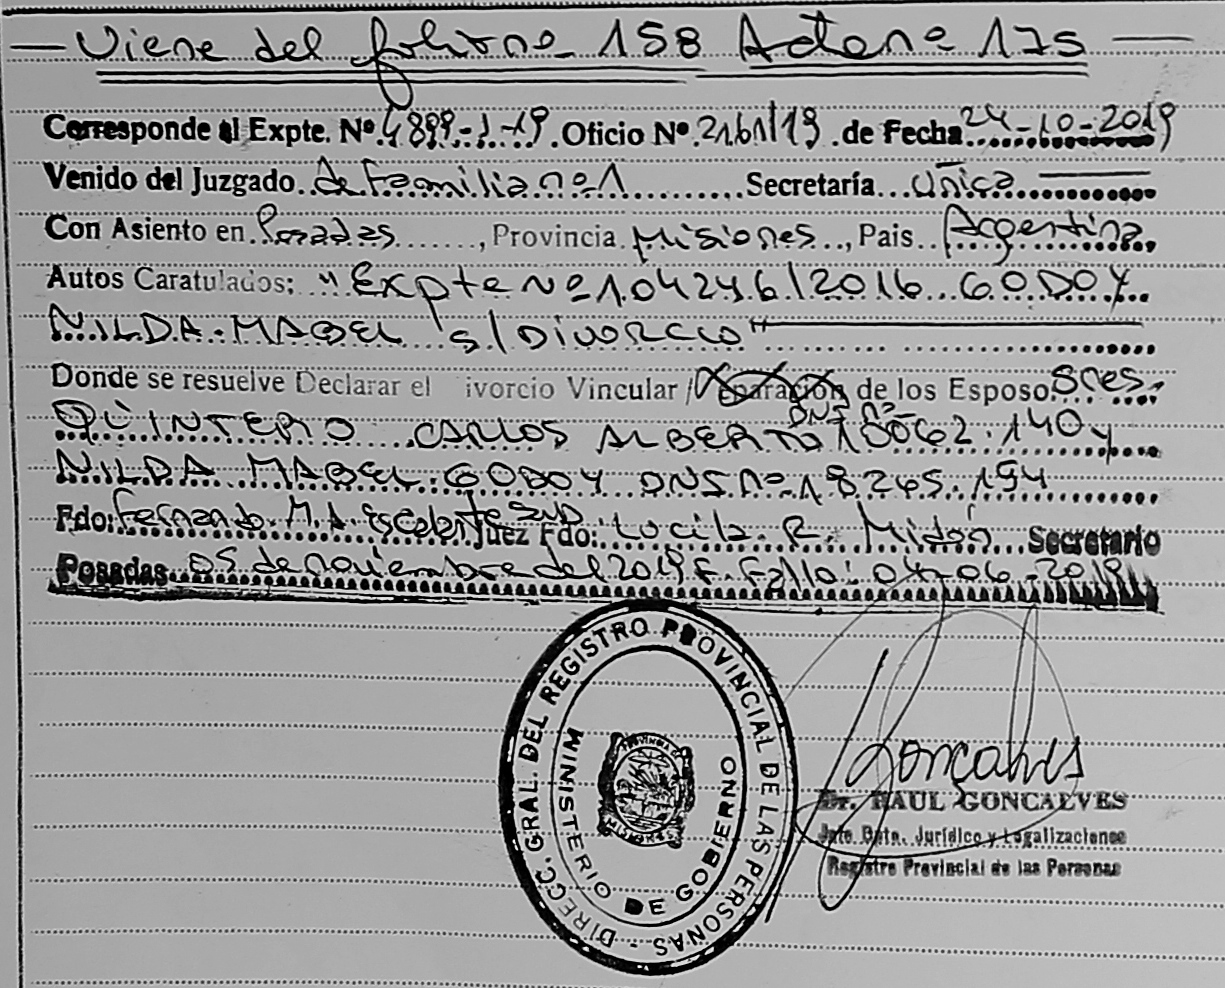 — Viene del folio nº 158 Acta nº 175 —
Corresponde al Expte. Nº 4899-J-19. Oficio Nº 2161/19 de Fecha 24-10-2019
Venido del Juzgado de Familia nº 1 Secretaría Única
Con Asiento en Posadas, Provincia Misiones, Pais Argentina
Autos Caratulados: "Expte Nº 104246/2016 GODOY
NILDA MABEL s/ DIVORCIO"
Donde se resuelve Declarar el ivorcio Vincular / Separación de los Esposo. Sres.
QUINTERO CARLOS ALBERTO DNI nº 18062.140 y
NILDA MABEL GODOY DNI nº 18.265.194
Fdo: Fernando M.A. Escalante Sup Juez Fdo: Lucila R. Midón Secretario
Posadas 05 de noviembre del 2019 F. Fallo: 04-06-2019
DIRECC. GRAL. DEL REGISTRO PROVINCIAL DE LAS PERSONAS -
MINISTERIO DE GOBIERNO
PROVINCIA DE
MISIONES
Gonçalves
Dr. RAUL GONCALVES
Jefe Dpto. Jurídico y Legalizaciones
Registro Provincial de las Personas